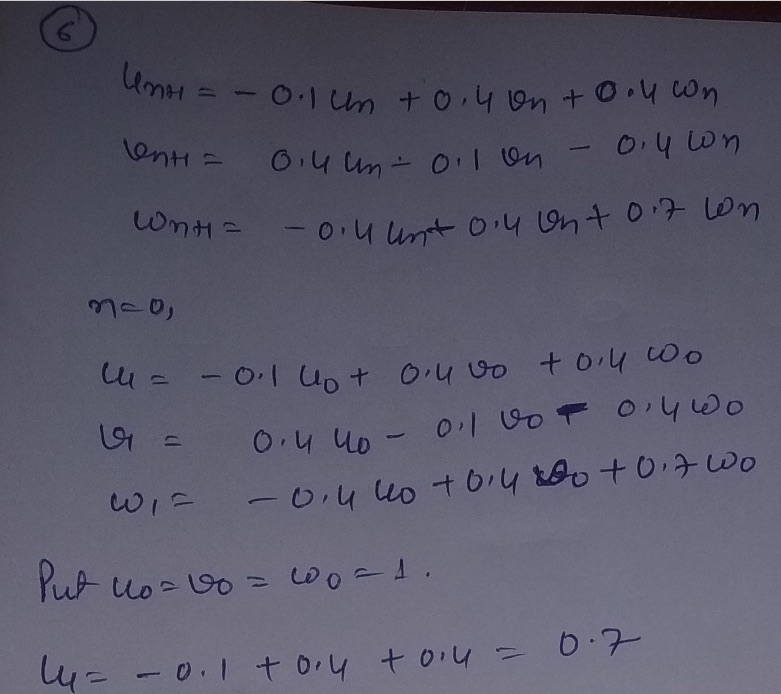 6
u_{n+1} = - 0.1 u_n + 0.4 v_n + 0.4 w_n
v_{n+1} = 0.4 u_n - 0.1 v_n - 0.4 w_n
w_{n+1} = - 0.4 u_n + 0.4 v_n + 0.7 w_n
n=0,
u_1 = - 0.1 u_0 + 0.4 v_0 + 0.4 w_0
v_1 = 0.4 u_0 - 0.1 v_0 - 0.4 w_0
w_1 = - 0.4 u_0 + 0.4 v_0 + 0.7 w_0
Put u_0 = v_0 = w_0 = 1.
u_1 = - 0.1 + 0.4 + 0.4 = 0.7